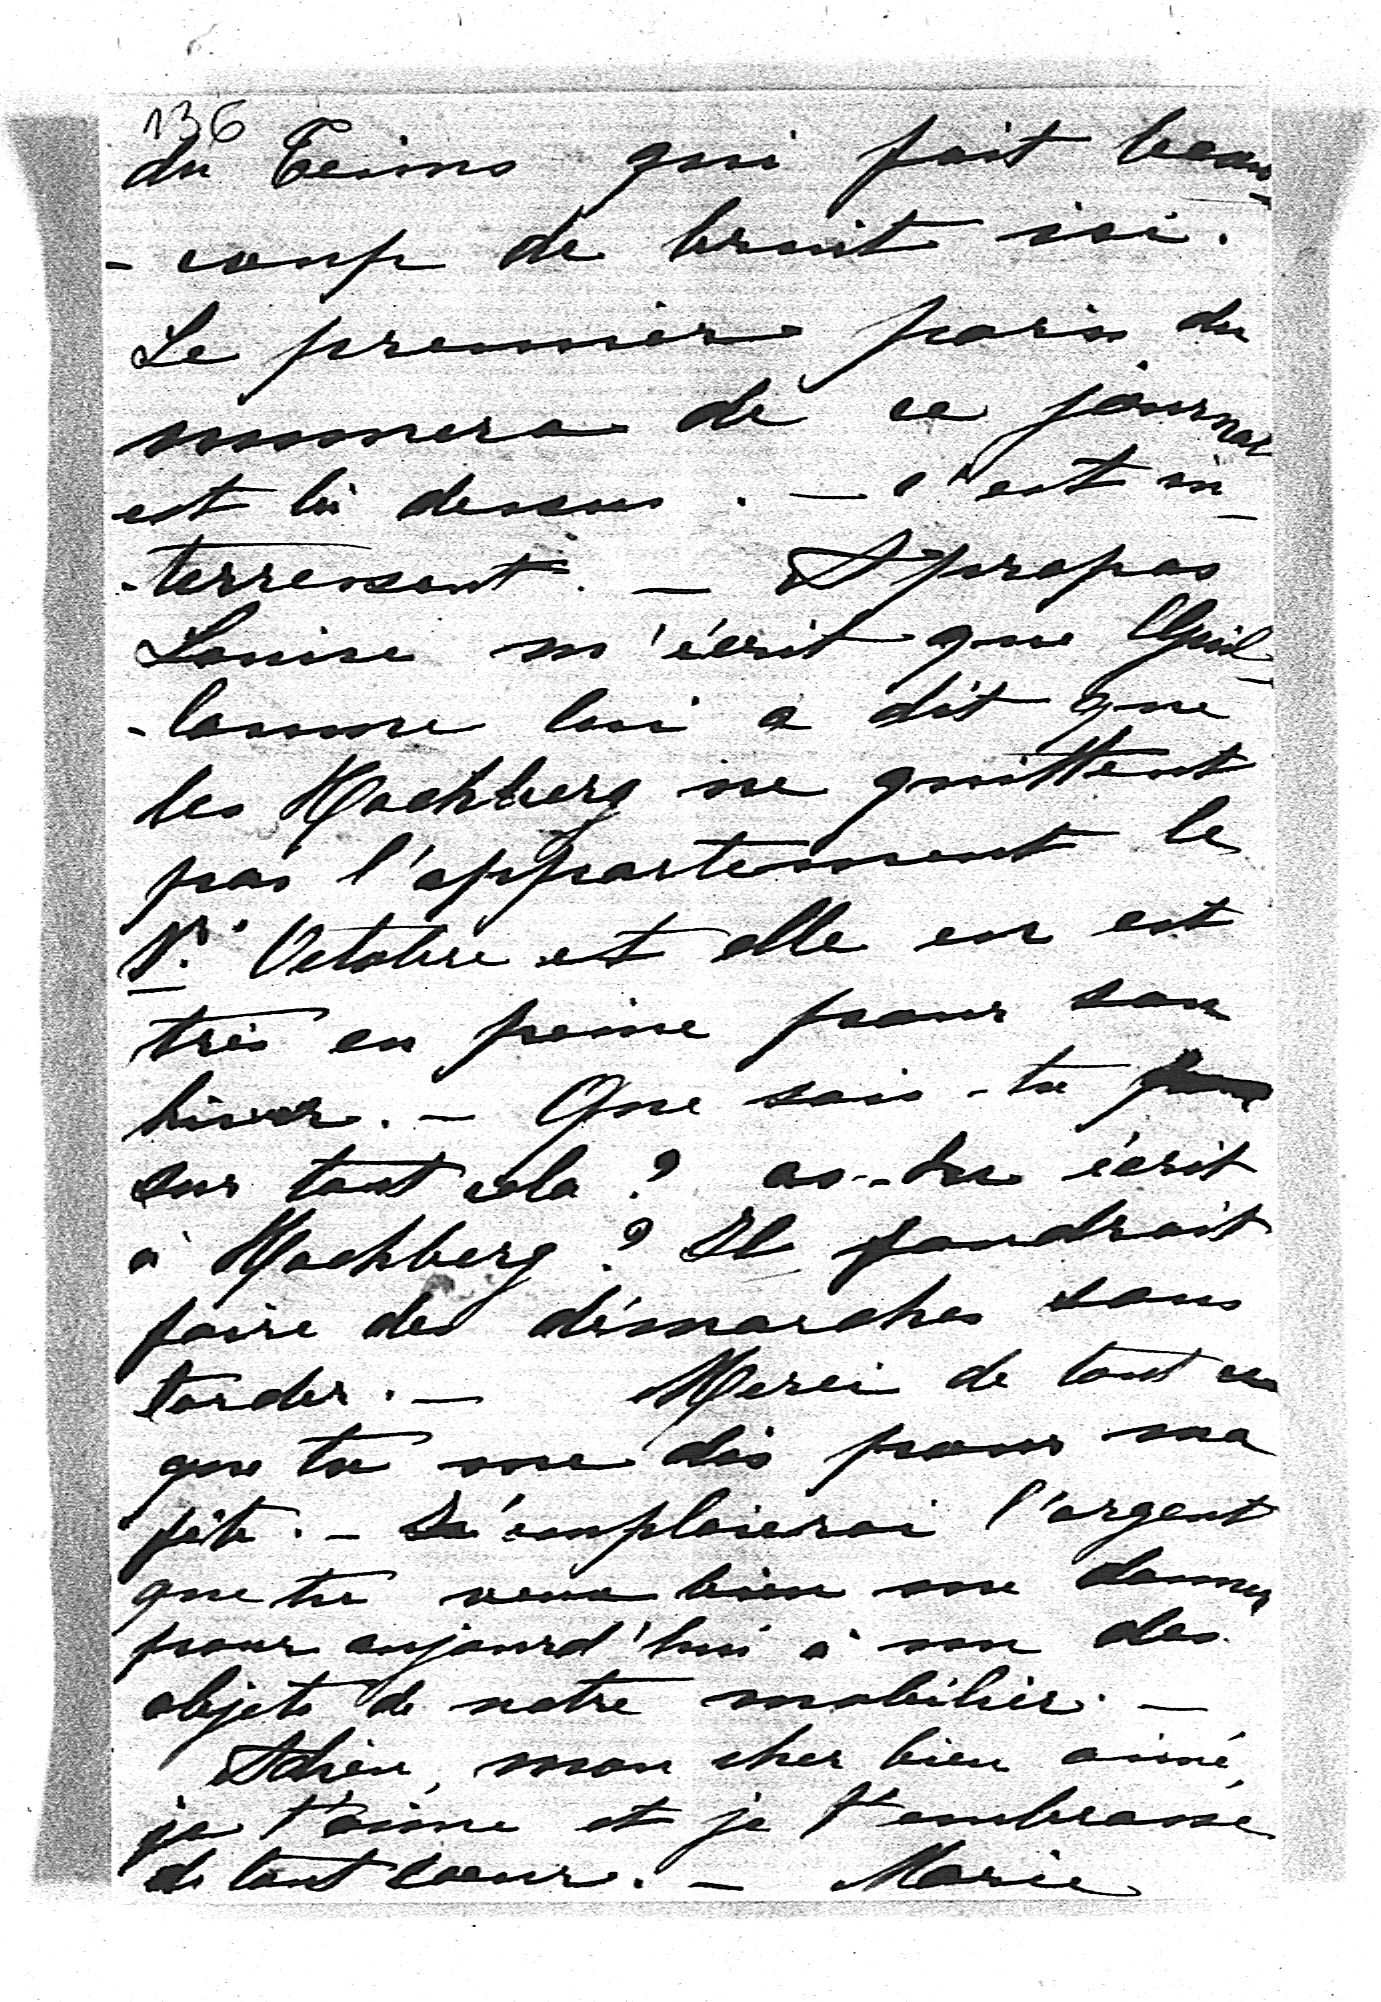 136
du Teims qui fait beau-
-coup de bruit ici.
Le premier paris du
numero de ce journal
est là dessus. - c'est in-
-terressant. - A propos
Louise m'écrit que Guil-
-laume lui a dit que
les Hochberg ne quittent
pas l'appartement le
1r. Octobre et elle en est
très en peine pour son
hiver. - Que sais-tu
sur tout cela ? as-tu écrit
à Hochberg ? Il faudrait
faire des démarches sans
tarder. - Merci de tout ce
que tu me dis pour ma
fête. - J'emploierai l'argent
que tu veux bien me donner
pour aujourd'hui à un des
objets de notre mobilier. -
Adieu, mon cher bien aimé,
je t'aime et je t'embrasse
de tout coeur. - Marie